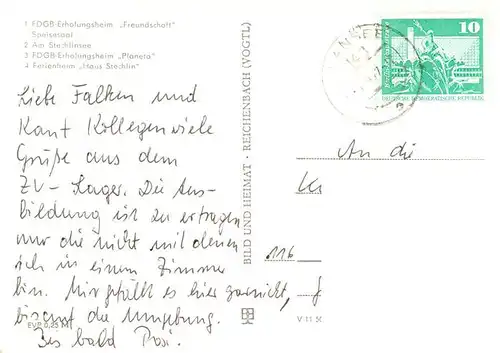 1 FDGB-Erholungsheim „Freundschaft"
Speisesaal
2 Am Stechlinsee
3 FDGB-Erholungsheim „Planeta"
4 Ferienheim „Haus Stechlin"
Liebe Falken und
Kant Kollegen viele
Grüße aus dem
ZV-Lager. Die Aus-
bildung ist zu ertragen
nur die nicht mit denen
ich in einem Zimmer
bin. Mir gefällt es hier garnicht,
die Umgebung.
Bis bald
EVP 0,25 M
BILD UND HEIMAT · REICHENBACH (VOGTL)
10
DEUTSCHE DEMOKRATISCHE REPUBLIK
An die
116
V 11